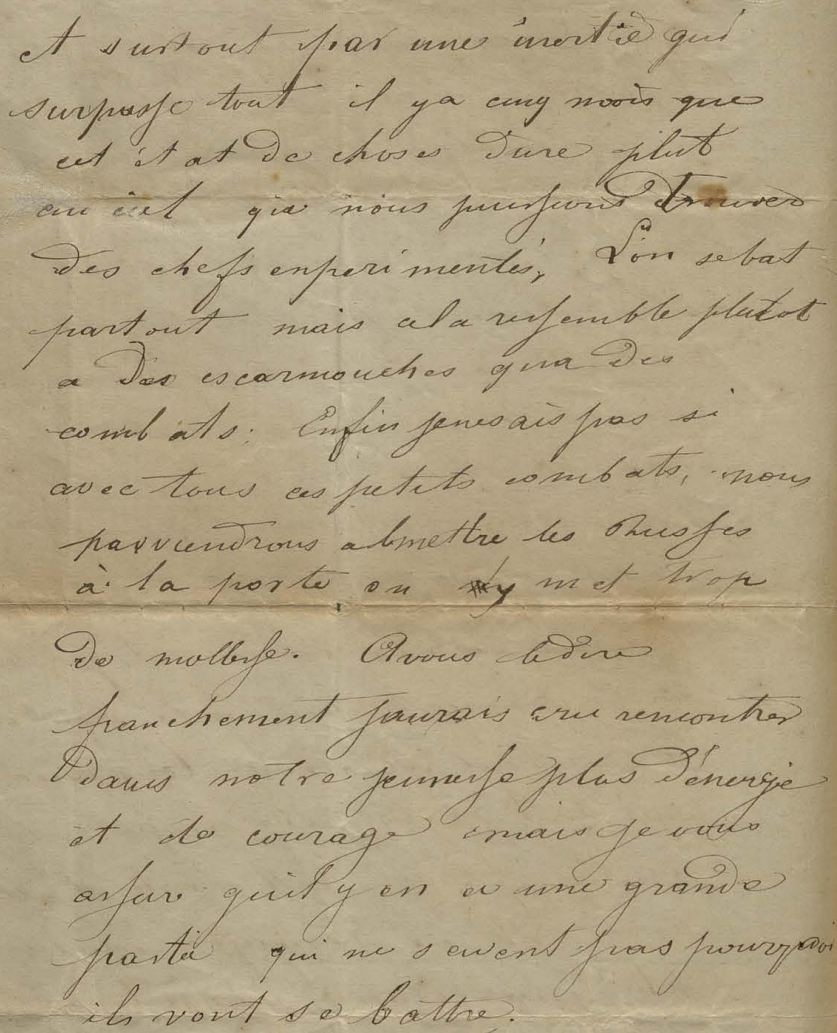 et surtout par une inertie qui
surpasse tout il ya cinq mois que
cet état de choses dure plut
au ciel que nous puissions trouver
des chefs enperimentés, L'on se bat
partout mais cela ressemble plutot
a des escarmouches qu'a des
combats: Enfin je ne sais pas si
avec tous ces petits combats, nous
parviendrons a les mettre les Russes
à la porte on n'y met trop
de mollesse. A vous le dire
franchement jaurais cru rencontrer
dans notre jeunesse plus d'énergie
et de courage mais je vous
assure qu'il y en a une grande
partie qui ne savent pas pourquoi
ils vont se battre.